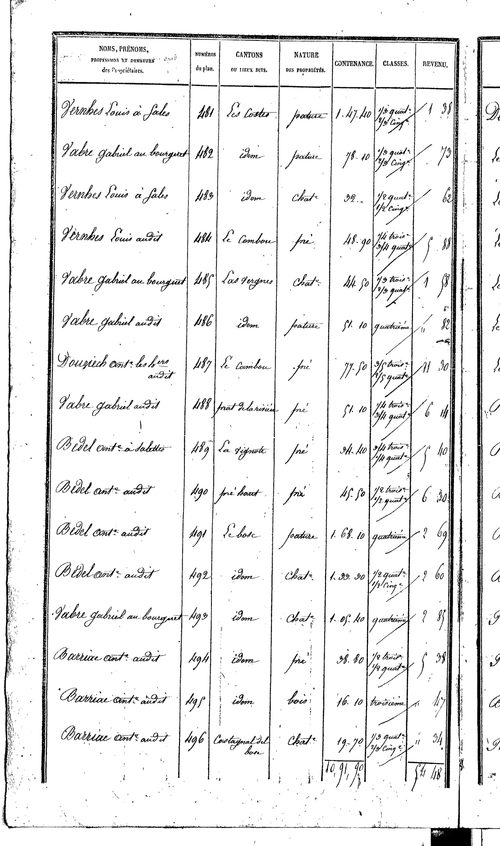 NOMS, PRÉNOMS, PROFESSION ET DEMEURE des Propriétaires. NUMÉROS du plan. CANTONS OU LIEUX DITS. NATURE DES PROPRIÉTÉS. CONTENANCE. CLASSES. REVENU.
Vernhes Louis à Sales 481 Les Costes pature 1.47.40 1/3 quat. 2/3 cinq. 1 38
Vabre gabriel au bourguet 482 idem pature 78.10 1/3 quat. 2/3 cinq. " 73
Vernhes Louis à Sales 483 idem chat. 1/2 quat. 1/2 cinq. " 62
Vernhes Louis audit 484 Le Cambou pré 48.90 1/4 trois. 3/4 quat. 5 88
Vabre gabriel au bourguet 485 Las Vergnes chat. 44.50 1/3 trois. 2/3 quat. 1 58
Vabre gabriel audit 486 idem pature 51.10 quatrieme " 82
ant. les hers audit 487 Le Cambou pré 77.50 3/5 trois. 2/5 quat. 11 30
Vabre gabriel audit 488 pré 51.10 1/4 trois. 3/4 quat. 6 14
Bedel ant. à Salettes 489 La Vignote pré 34.40 3/4 trois. 1/4 quat. 5 40
Bedel ant. audit 490 pré haut pré 45.50 1/2 trois. 1/2 quat. 6 30
Bedel ant. audit 491 Le bosc pature 1.68.10 quatrieme 2 69
Bedel ant. audit 492 idem chat. 1/2 quat. 1/2 cinq. 2 60
Vabre gabriel au bourguet 493 idem chat. 1.05.40 quatrieme 2 85
Barriac ant. audit 494 idem pré 38.80 1/2 trois. 1/2 quat. 5 38
Barriac ant. audit 495 idem bois 16.10 troisieme " 47
Barriac ant. audit 496 Costagnal del bosc chat. 19.70 1/3 quat. 2/3 cinq. " 34
10,91,90 54 48